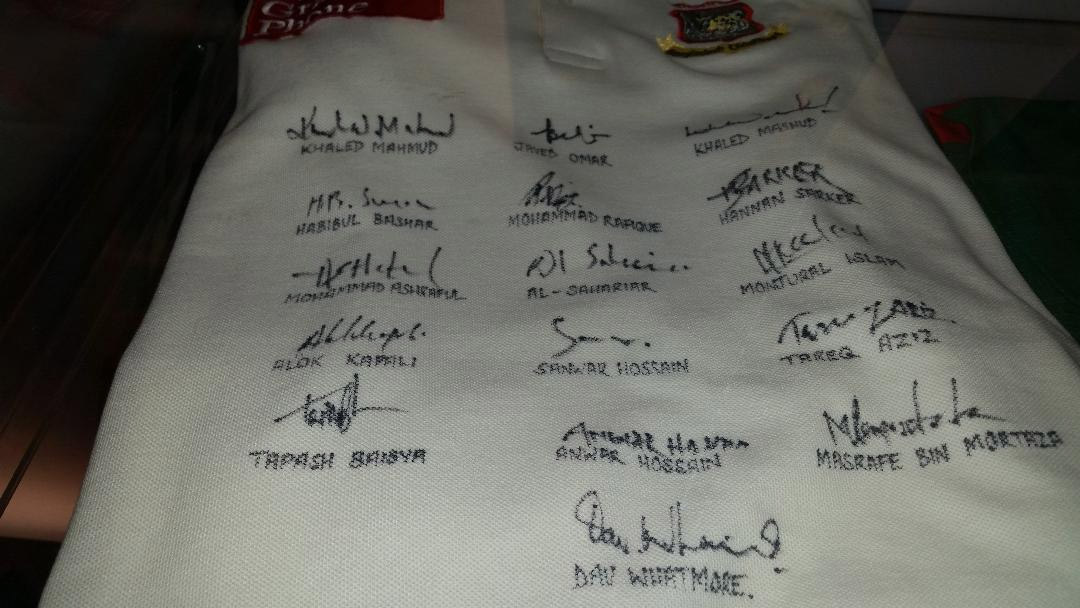 Grameen
Phone
KHALED MAHMUD
JAVED OMAR
KHALED MASHUD
HB. Suman
SARKER
HABIBUL BASHAR
MOHAMMAD RAFIQUE
HANNAN SARKER
MOHAMMAD ASHRAFUL
AL-SAHARIAR
MONJURAL ISLAM
ALOK KAPALI
SANWAR HOSSAIN
TAREQ AZIZ
TAPASH BAISYA
ANWAR HOSSAIN
MASRAFE BIN MORTAZA
DAV WHATMORE.